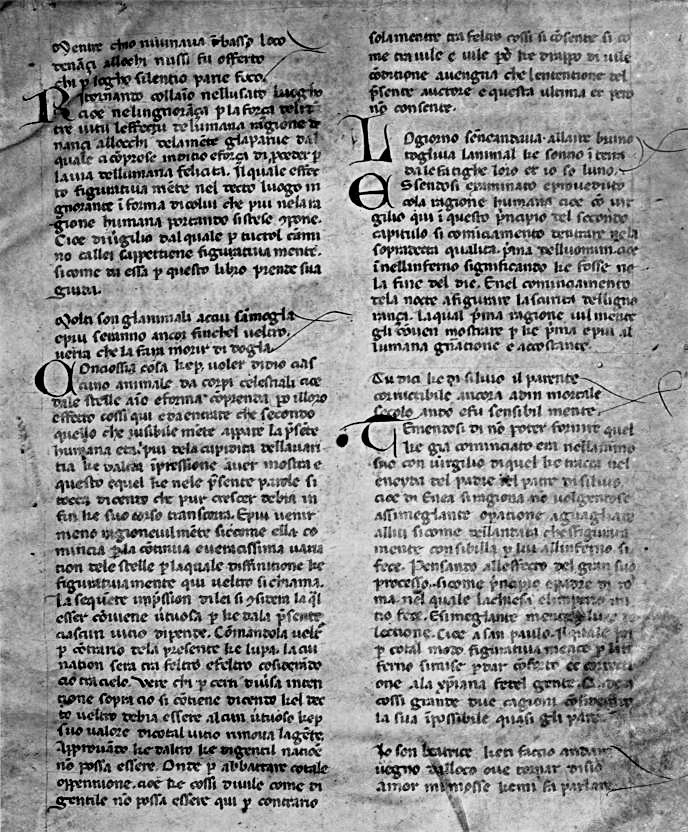 Mentre chio ruinaua ī basso loco
denāçi allochi mi si fu offerto
chi p lōgho silentio parea fioco.
Ritornando collaīo nellusato luogho
cioe nelingnorāça p la força deli
tre uitii leffectu de lumana ragione de
nançi allocchi dela mēte glapparue dal
quale cōprese inditio eforça di pceder p
la uia dellumana felicita. Il quale effec
to figuratiua mēte nel decto luogo in
gnorante ī forma di colui che piu nela ra
gione humana portando si stese si pone.
Cioe di uirgilio dal quale p tucto l cāmi
no callei sappertiene figuratiua mente.
si come da essa p questo libro prende sua
guida.
Molti son glianimali acui sāmoglia
epiu seranno ancor finchel ueltro
uerra che la fara morir di doglia
Conciossia cosa kep uoler didio cias
cuno animale da corpi celestiali cioe
dale stelle aīo eforma cōprenda po illoro
effecto cossi qui eda entrare che secondo
quello che uisibile mēte appare la psēte
humana eta piu dela cupidita dellauari
tia ke daltra īpressione auer mostra e
questo equel ke nele psente parole si
tocca dicendo che pur crescer debia in
fin ke suo corso transcorra. Epiu uenir
meno ragioneuilmēte si come ella co
mincia pla cōtinua eueracissima uaria
tion dele stelle pla quale diffinitione ke
figuratiuamente qui ueltro si chiama.
La sequēte īmpssion di lei si ɔsidera la ql
esser cōuiene uirtuosa p ke dala psente
ciascun uitio dipende. Comandola uelt
p cōtrario dela presente ke lupa. la cui
nation sera tra feltro efeltro cosiderādo
cio tra cielo. Vero chi p certi diuisa inten
tione sopra cio si cōtiene dicendo kel dec
to ueltro debia essere alcun uirtuoso kep
suo valore dicotal uitio rimoua lagēte.
Approuādo ke daltro ke digentil natiōe
nō possa essere. Onde p abbattare cotale
oppentione. cioe ke cossi diuile come di
gentile nō possa essere qui p contrario
solamente tra feltro cossi si cōsente si co
me tra uile e uile po ke drappo di uile
cōditione auengna che lententione del
psente auctore e questa ultima ce pero
nō consente.
Lo giorno senēandaua. allaire bruno
togliua lanimal ke sonno ī terra
dale fatighe loro et io so luno.
Essendosi examinato eproueduto
cola ragione humana cioe cō uir
gilio qui ī questo pricipio del secondo
capitulo si comicamento detutare nela
sopradecta qualita. pma delluomini. cioe
ī nellinferno significando ke fosse ne
la fine del die. Enel cominciamento
dela nocte afigurare la scurita delligno
rança. La qual pma ragione uil mente
gli cōuen mostrare p ke pma epiu al
lumana gnatione e accostante.
Tu dici ke di siluio il parente
corructibile ancora ad īn mortale
secolo ando efu sensibil mente.
Temendosi di nō poter fornire quel
ke gia cominciato era nellanimo
suo con uirgilio diquel ke tracta nel
eneyda del padre del patre di siluio.
cioe di Enea si ragiona nō uolgendose
assimegliante opatione agguagliare
alliui si come dellandata che figuratiua
mente con sibilla p lui allinferno si
fece. Pensando alleffecto del gran suo
processo. si come pricipio epadre di ro
ma. nel quale la chiesa
tio fece. Esimegliante mente
lectione. Cioe a san paulo. al quale poi
p cotal modo figuratiua mente p linf
ferno simise pdar cōforto et correcti
one. ala xpiana fede
cossi grande due cagioni
la sua īpossibile quasi gli pare.
Io son beatrice keti faccio andare
uegno dalloco oue tornar disio
amor mi mosse kemi fa parlare